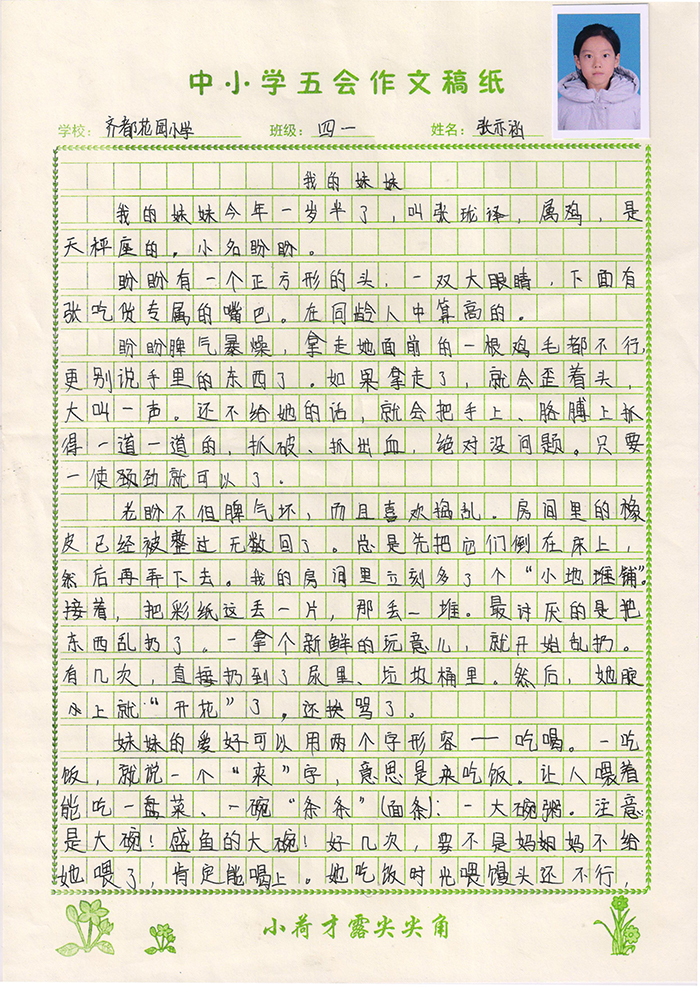 中小学五会作文稿纸
学校：齐都花园小学 班级：四一 姓名：张亦涵
我的妹妹
我的妹妹今年一岁半了，叫张珑译，属鸡，是
天秤座的。小名盼盼。
盼盼有一个正方形的头，一双大眼睛，下面有
张吃货专属的嘴巴。在同龄人中算高的。
盼盼脾气暴燥，拿走她面前的一根鸡毛都不行，
更别说手里的东西了。如果拿走了，就会歪着头，
大叫一声。还不给她的话，就会把手上、胳膊上抓
得一道一道的，抓破、抓出血，绝对没问题。只要
一使颈劲就可以了。
老盼不但脾气坏，而且喜欢捣乱。房间里的橡
皮已经被整过无数回了。总是先把它们倒在床上，
然后再弄下去。我的房间里立刻多了个“小地堆铺”。
接着，把彩纸这丢一片，那丢一堆。最讨厌的是把
东西乱扔了。一拿个新鲜的玩意儿，就开始乱扔。
有几次，直接扔到了尿里、垃圾桶里。然后，她腚
上就“开花”了，还挨骂了。
妹妹的爱好可以用两个字形容——吃喝。一吃
饭，就说一个“来”字，意思是来吃饭。让人喂着
能吃一盘菜、一碗“条条”（面条）：一大碗粥。注意
是大碗！盛鱼的大碗！好几次，要不是妈妈妈不给
她喂了，肯定能喝上。她吃饭时光喂馒头还不行，
小荷才露尖尖角